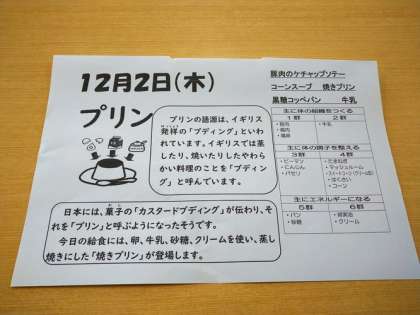 12月2日(木)
プリン
プリンの語源は、イギリス
発祥の「プディング」といわ
れています。イギリスでは蒸
したり、焼いたりしたやわら
かい料理のことを「プディン
グ」と呼んでいます。
日本には、菓子の「カスタードプディング」が伝わり、そ
れを「プリン」と呼ぶようになったそうです。
今日の給食には、卵、牛乳、砂糖、クリームを使い、蒸し
焼きにした「焼きプリン」が登場します。
豚肉のケチャップソテー
コーンスープ 焼きプリン
黒糖コッペパン 牛乳
主に体の組織をつくる
1群 2群
・豚肉 ・牛乳
・鶏卵
主に体の調子を整える
3群 4群
・ピーマン ・たまねぎ
・にんじん ・マッシュルーム
・パセリ
・はくさい
・コーン
主にエネルギーになる
5群 6群
・パン
・砂糖 ・クリーム